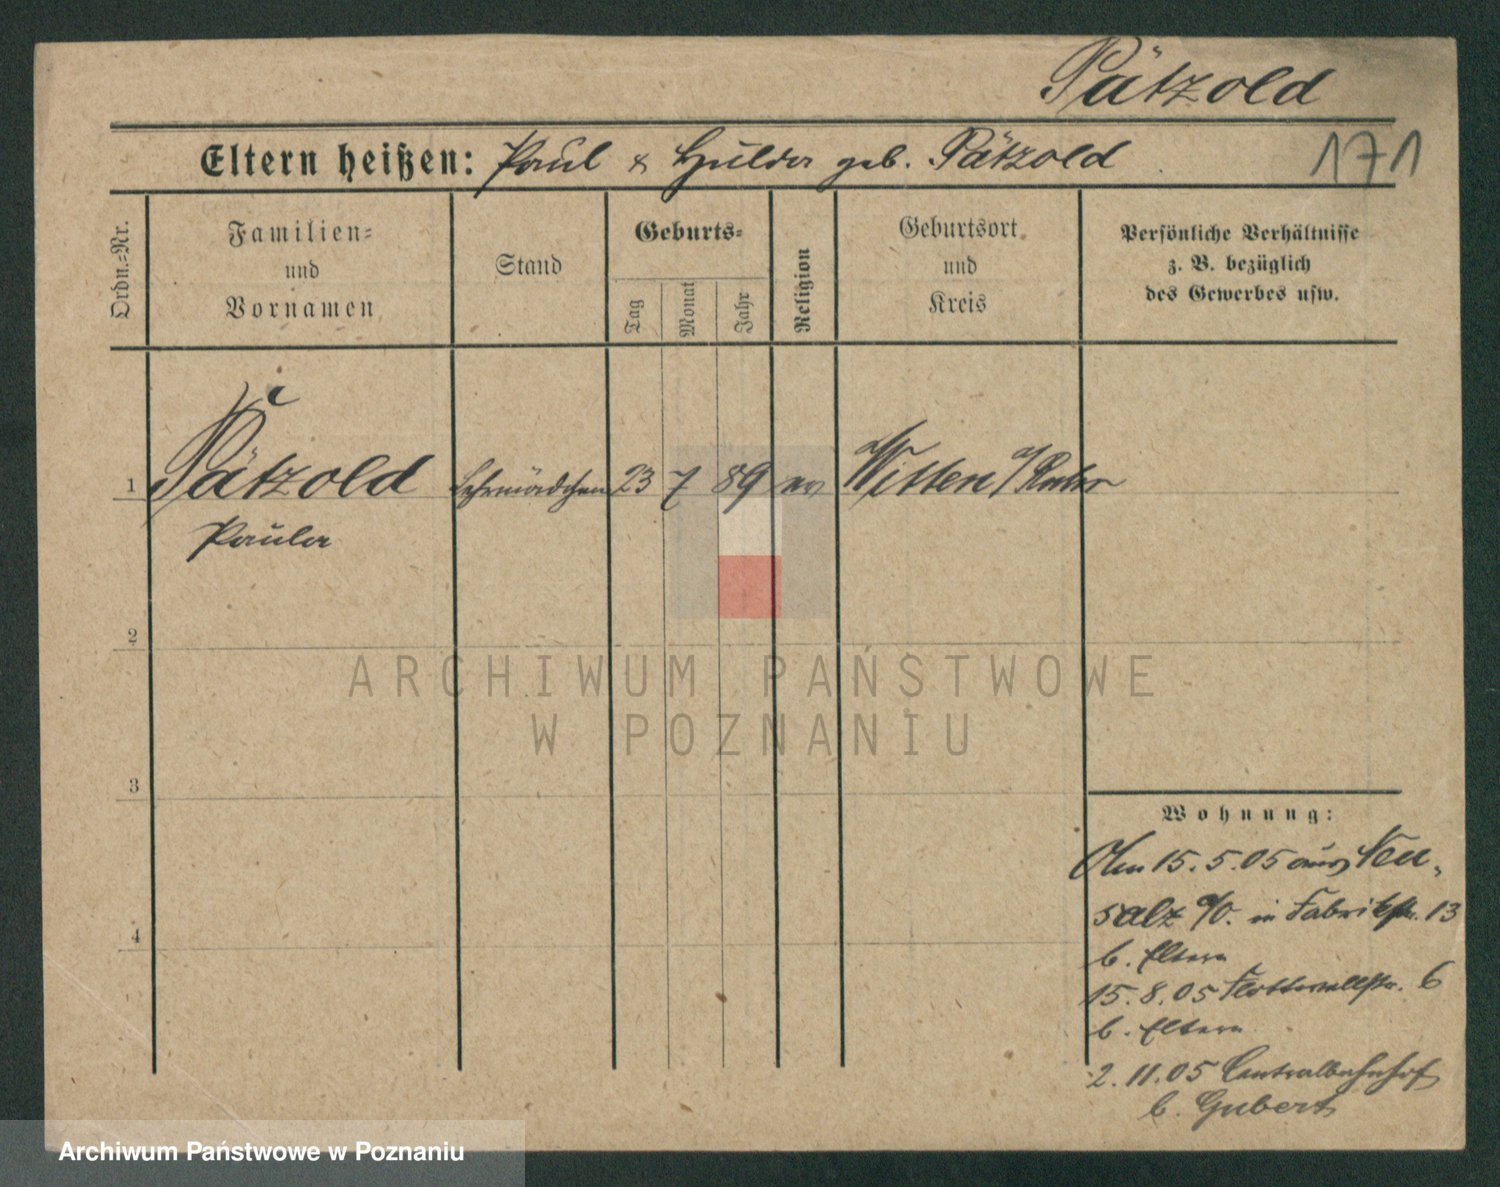 Pätzold
Eltern heißen: Paul & Hulda geb. Pätzold
171
Ordn.-Nr.
Familien-
und
Vornamen
Stand
Geburts-
Tag
Monat
Jahr
Religion
Geburtsort
und
Kreis
Persönliche Verhältnisse
z. B. bezüglich
des Gewerbes usw.
1 Pätzold Lehrmädchen 23 7 89 ev Witten a/Ruhr
Paula
2
3
4
ARCHIWUM PAŃSTWOWE
W POZNANIU
Wohnung:
Am 15.5.05 aus Neu-
salz a/O. in Fabrikstr. 13
b. Eltern
15.8.05 Flottwellstr. 6
b. Eltern
2.11.05 Centralbahnhof
b. Gubert
Archiwum Państwowe w Poznaniu